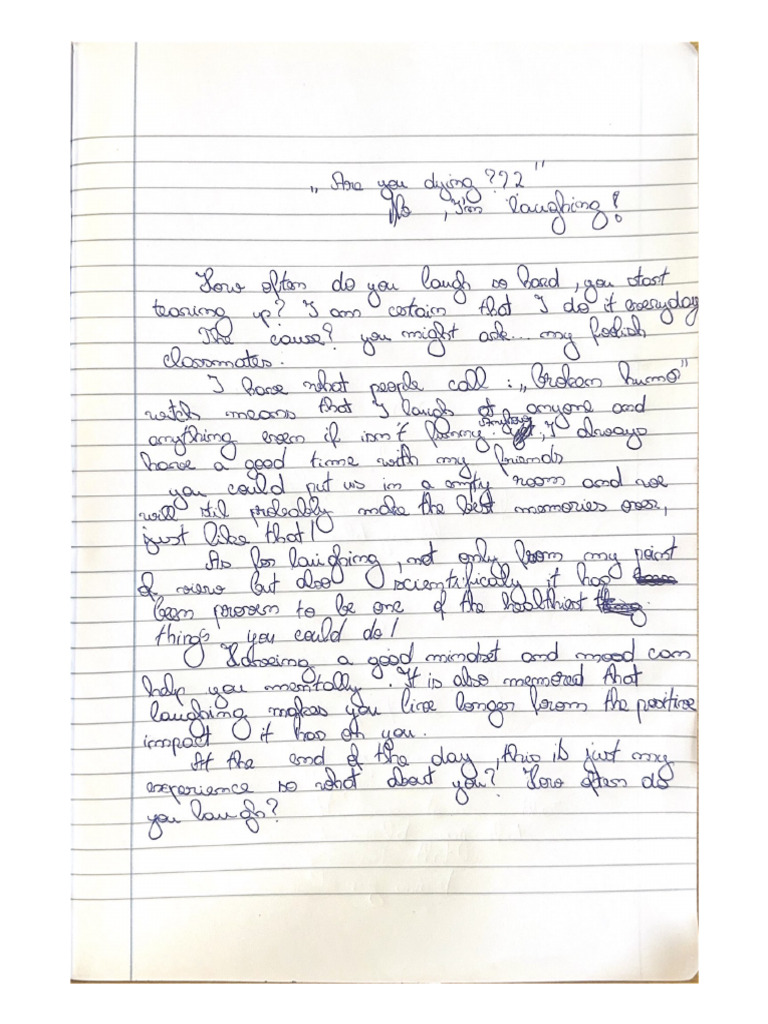 „ Are you dying???"
No, I'm laughing!
How often do you laugh so hard, you start
tearing up? I am certain that I do it everyday
The cause? you might ask... my foolish
classmates.
I have what people call : „broken humor"
witch means that I laugh at anyone and
anything even if isn't funny. Anyway, I always
have a good time with my friends
you could put us in a empty room and we
will stil probably make the best memories ever,
just like that!
As for laughing, not only from my point
of view but also scientifically it has
been proven to be one of the healthiest
things you could do!
Having a good mindset and mood can
help you mentally. It is also that
laughing makes you live longer from the positive
impact it has on you.
At the end of the day, this is just my
experience so what about you? How often do
you laugh?